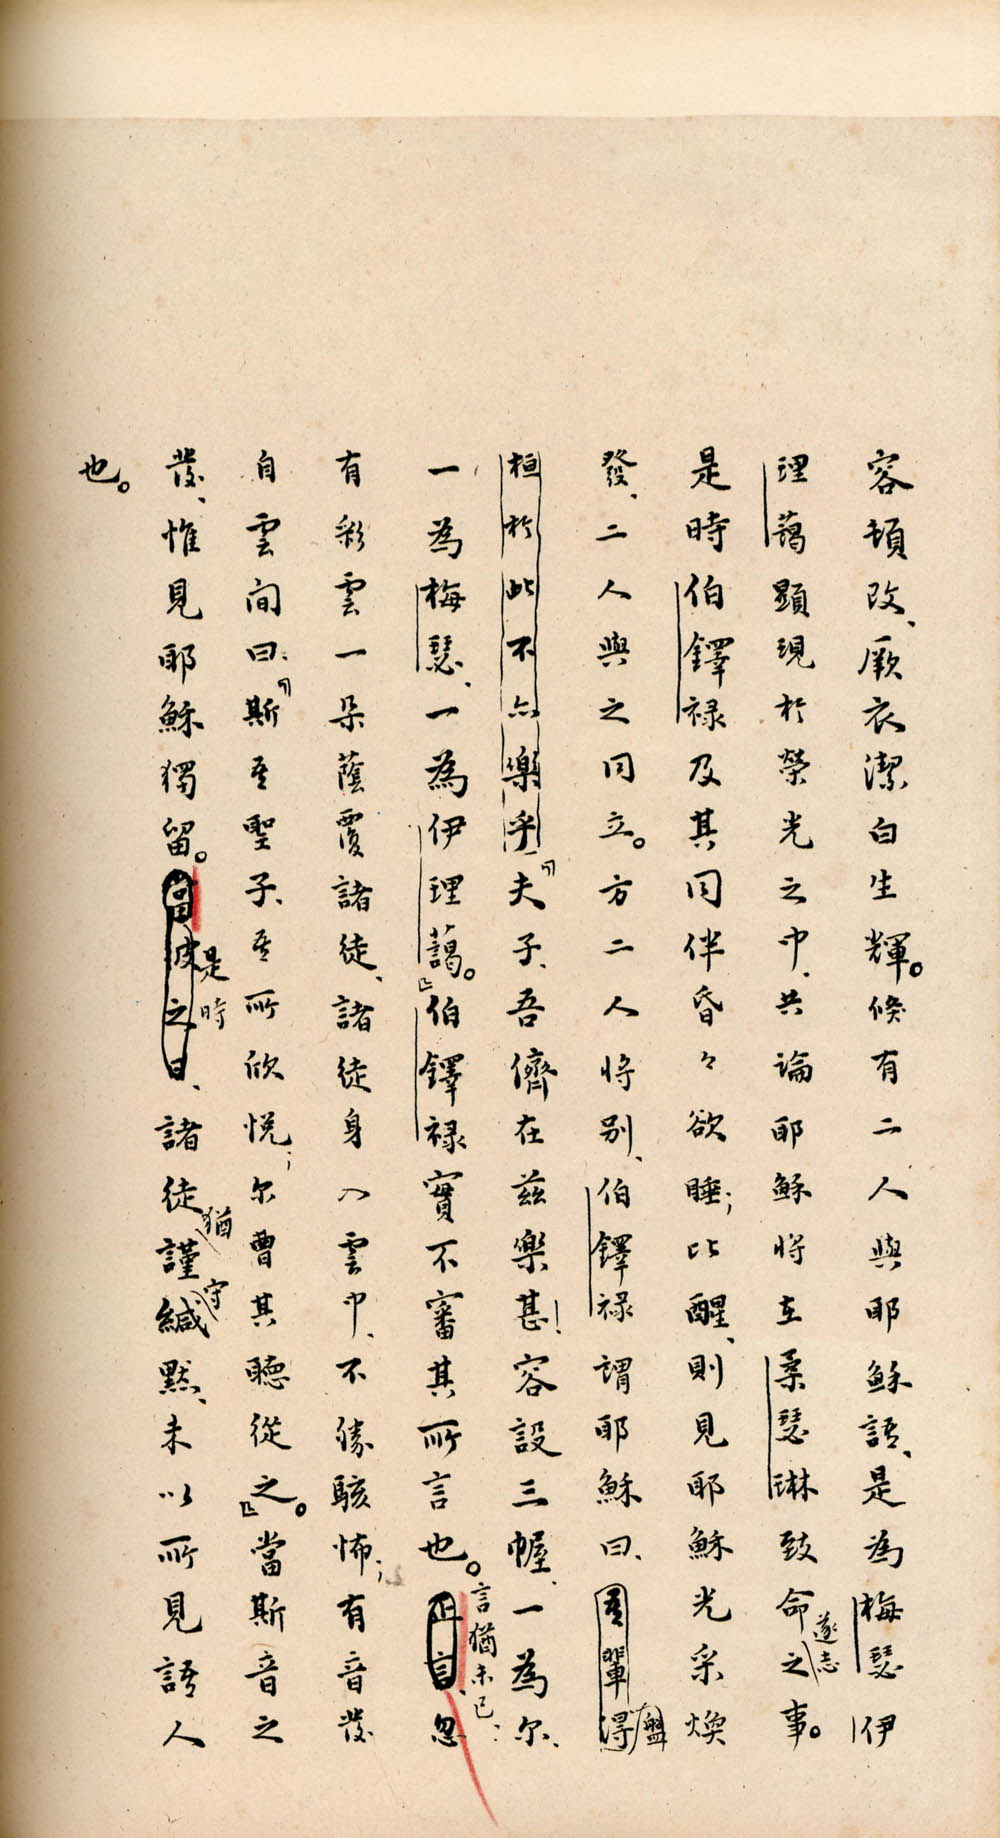 容頓改、厥衣潔白生輝。倏有二人與耶穌語、是為梅瑟伊
理藹顯現於榮光之中、共論耶穌將在柔瑟琳致命之事。
遂志
是時伯鐸祿及其同伴昏々欲睡；比醒、則見耶穌光采煥
發、二人與之同立。方二人將別、伯鐸祿謂耶穌曰、吾輩得
盤
桓於此不亦樂乎「夫子、吾儕在茲樂甚！容設三幄、一為尔、
一為梅瑟、一為伊理藹。」伯鐸祿實不審其所言也。正言、忽
言猶未已、
有彩雲一朵蔭覆諸徒、諸徒身入雲中、不勝駭怖；有音發
自雲间曰、「斯吾聖子、吾所欣悦；尔曹其聽從之。」當斯音之
發、惟見耶穌獨留。當彼之日、諸徒謹緘默、未以所見語人
是時
猶
守
也。